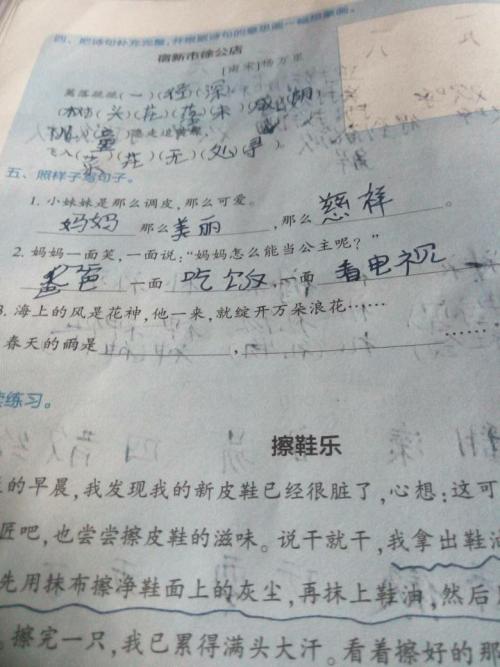 四、把诗句补充完整,并根据诗句的意思画一幅想象画。
宿新市徐公店
[南宋]杨万里
篱落疏疏(一)(径)(深)
(树)(头)(花)(落)(未)
童
飞入(菜)(花)(无)(处)(寻)。
五、照样子写句子。
1. 小妹妹是那么调皮,那么可爱。
妈妈 那么 美丽 ,那么 慈祥 。
2. 妈妈一面笑,一面说:“妈妈怎么能当公主呢?”
爸爸 一面 吃饭 ,一面 看电视
3. 海上的风是花神,他一来,就绽开万朵浪花……
春天的雨是 , ……
练习。
擦鞋乐
的早晨,我发现我的新皮鞋已经很脏了,心想:这可
匠吧,也尝尝擦皮鞋的滋味。说干就干,我拿出鞋油
先用抹布擦净鞋面上的灰尘,再抹上鞋油,然后
。擦完一只,我已累得满头大汗。看着擦好的那